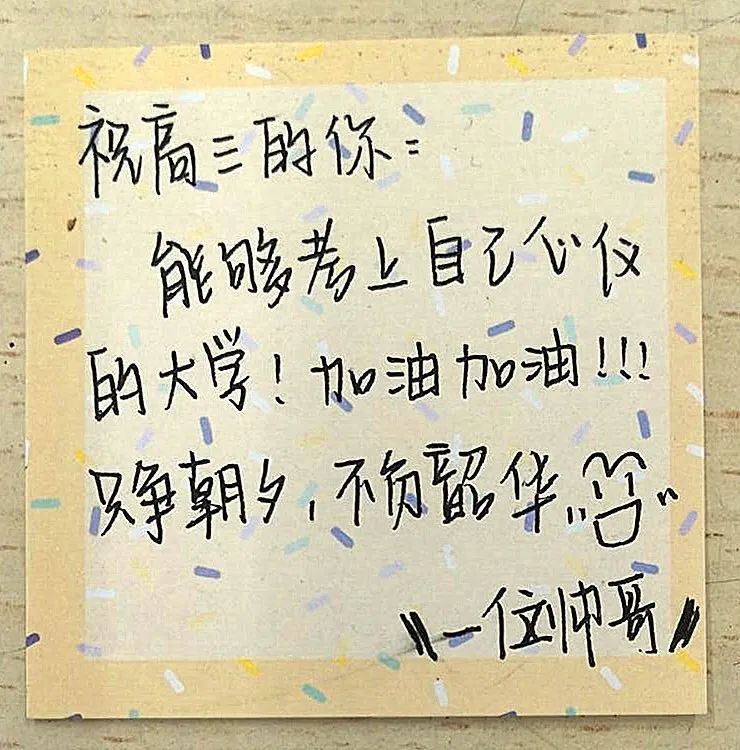 祝高三的你：
能够考上自己心仪
的大学！加油加油！！！
只争朝夕，不负韶华
一位帅哥